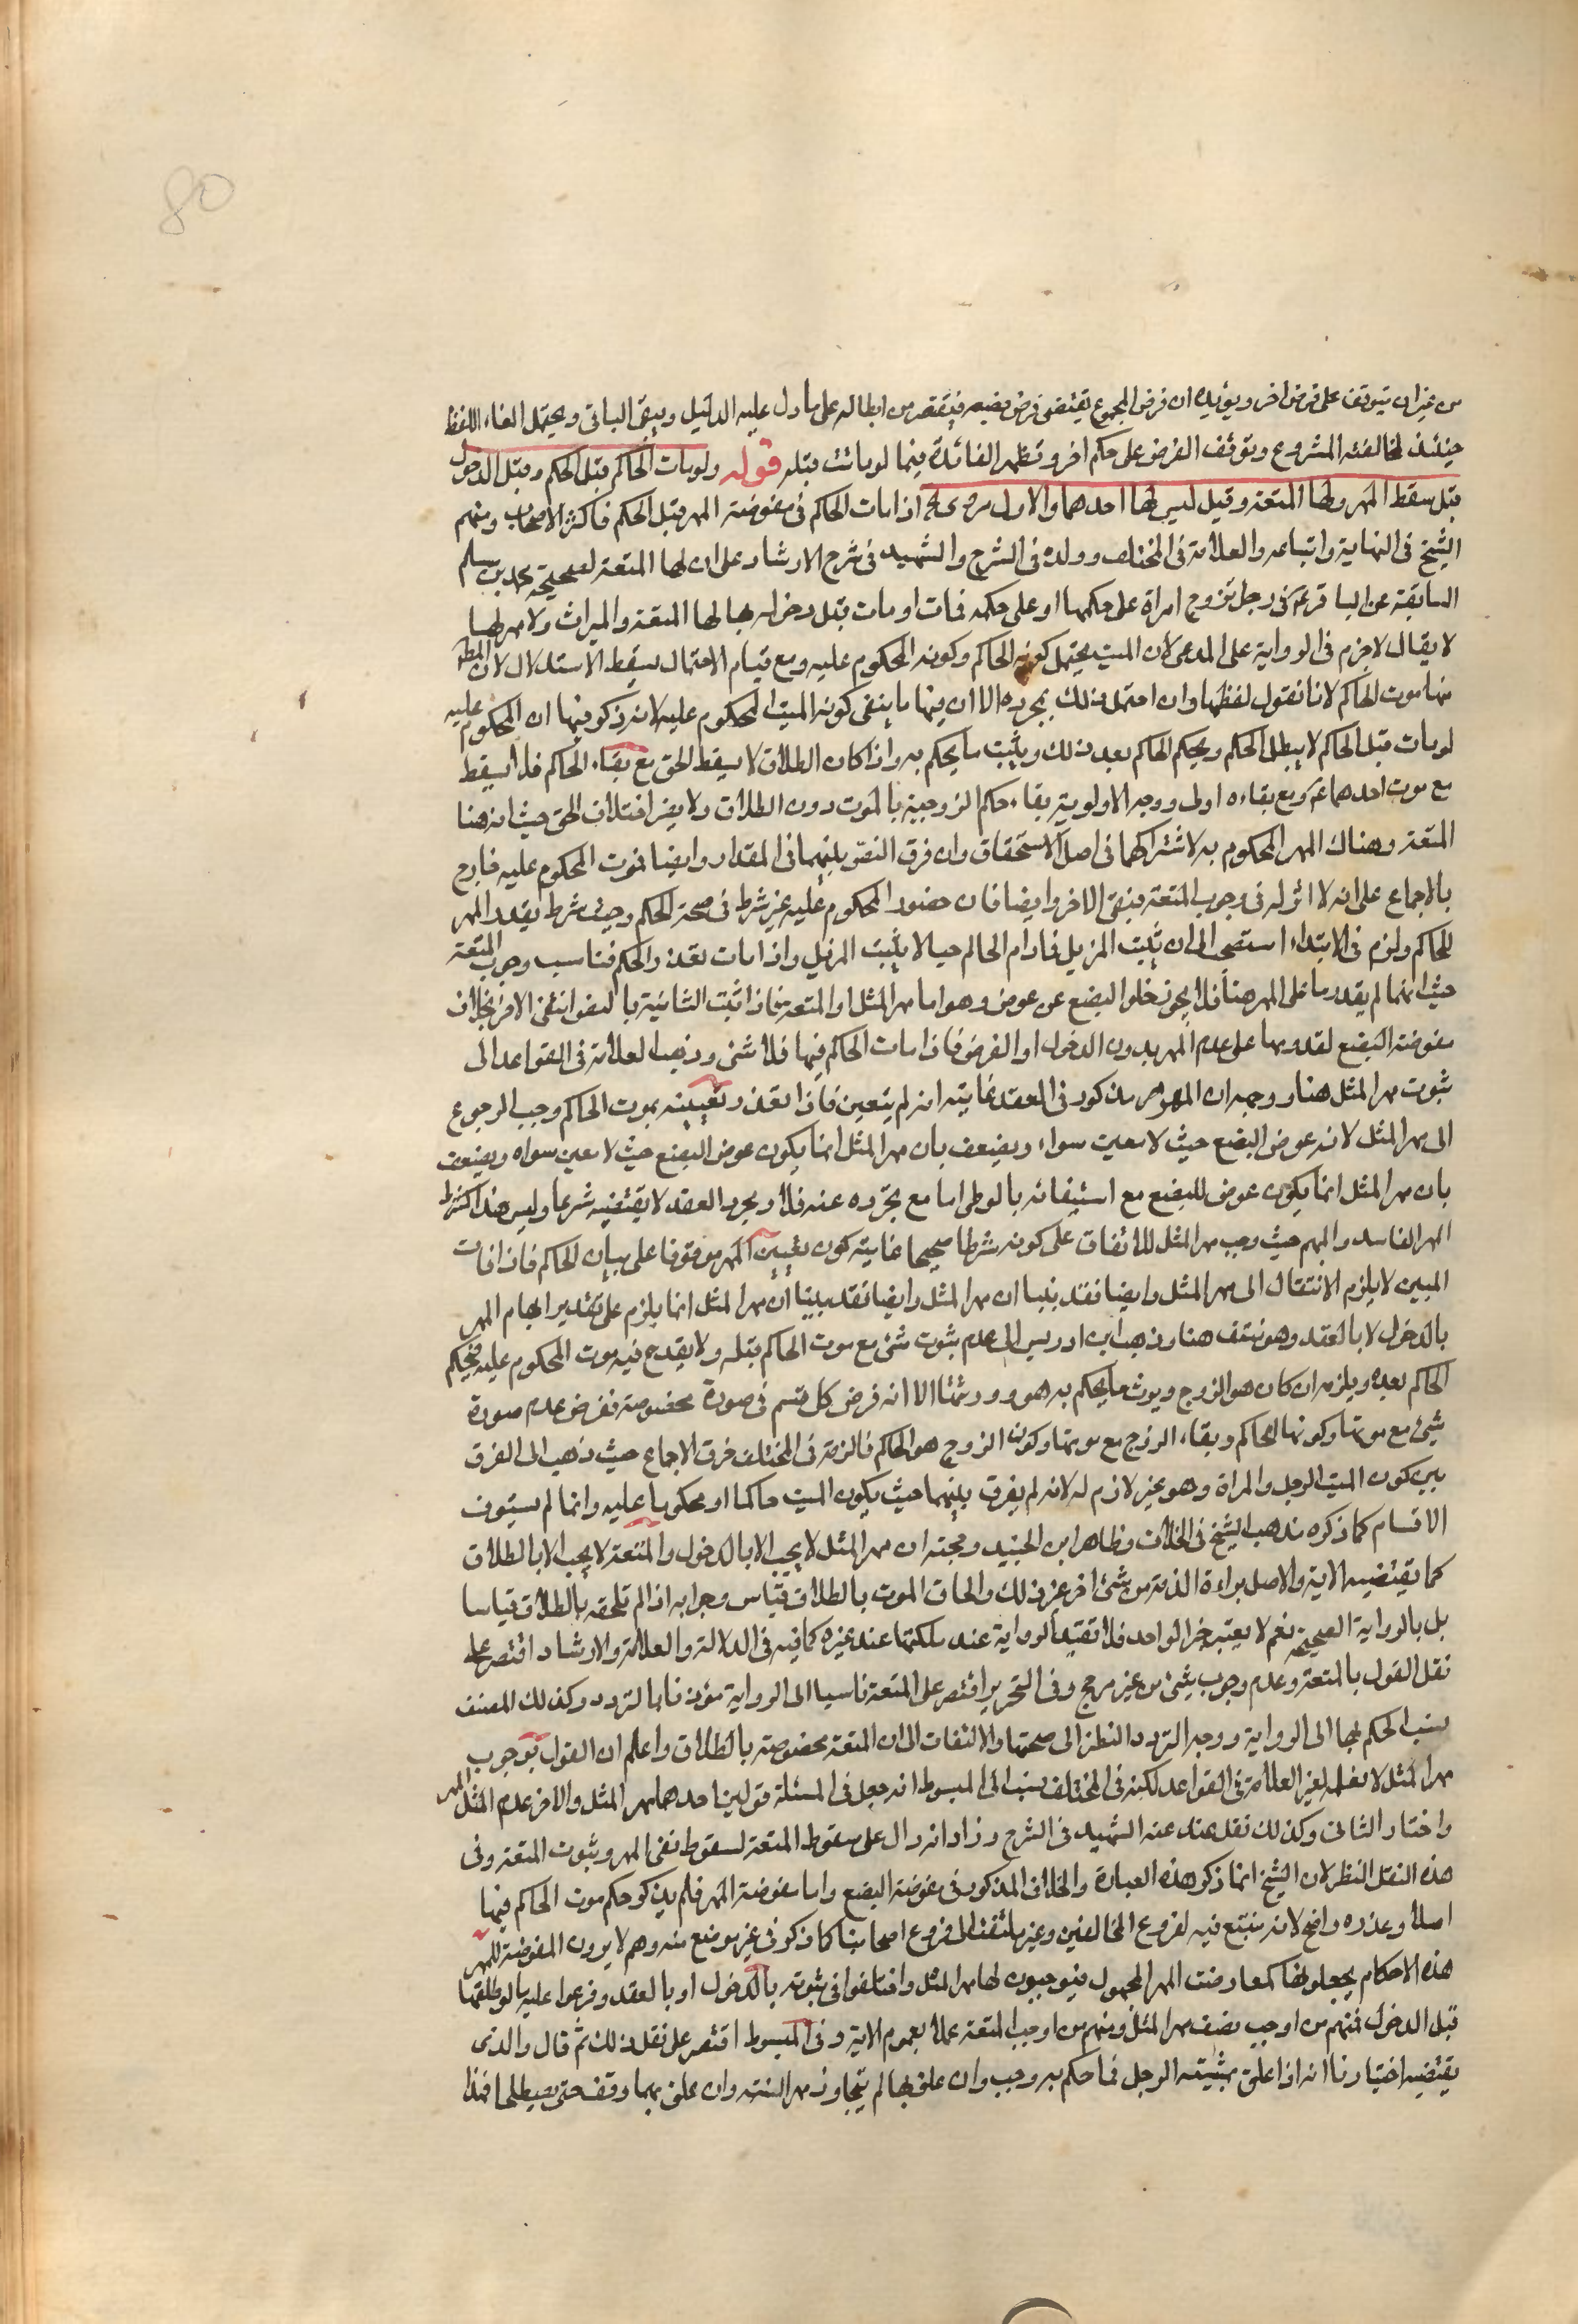 80
من غير ان يتوقف على فرض اخر ويؤيده ان فرض المجموع يقتضى فرض بعضه فيقتصر من ابطاله على ما دل عليه الدليل ويبقى الباقى ويحتمل الغاء اللفظ
حينئذ لمخالفته المشروع وتوقف الفرض على حكم اخر وتظهر الفائدة فيما لو ماتت قبله قوله ولو مات الحاكم قبل الحكم وقبل الدخول
قيل سقط المهر ولها المتعة وقيل ليس لها احدهما والاول مروى اذا مات الحاكم فى مفوضة المهر قبل الحكم فاكثر الاصحاب ومنهم
الشيخ فى النهاية واتباعه والعلامة فى المختلف وولده فى الشرح والشهيد فى شرح الارشاد على ان لها المتعة لصحيحة محمد بن مسلم
السابقة عن الباقر ع فى رجل تزوج امراة على حكمها او على حكمه فمات او ماتت قبل دخوله بها لها المتعة والميراث ولا مهر لها
لا يقال لا جزم فى الرواية على المدعى لان الميت يحتمل كونه الحاكم وكونه المحكوم عليه ومع قيام الاحتمال يسقط الاستدلال لان المط
منها موت الحاكم لانا نقول لفظها وان احتمل ذلك بمجرده الا ان فيها ما ينفى كونه الميت المحكوم عليه لانه ذكر فيها ان المحكوم عليه
لو مات قبل الحاكم لا يبطل الحكم ويحكم الحاكم بعد ذلك ويثبت ما يحكم به واذا كان الطلاق لا يسقط الحق مع بقاء الحاكم فلا يسقط
مع موت احدهما ع ومع بقاءه اولى ووجه الاولوية بقاء حكم الزوجية بالموت دون الطلاق ولا يضر اختلاف الحق حيث انه هنا
المتعة وهناك المهر المحكوم به لاشتراكهما فى اصل الاستحقاق وان فرق النص بينهما فى المقدار وايضا فموت المحكوم عليه خارج
بالاجماع على انه لا اثر له فى وجوب المتعة فبقى الاخر وايضا فان حضور المحكوم عليه غير شرط فى صحة الحكم وحيث شرط تقدير المهر
للحاكم ولزم فى الابتداء استصحب الى ان يثبت المزيل فما دام الحاكم حيا لا يثبت المزيل واذا مات تعذر الحكم فناسب وجوب المتعة
حيث انهما لم يقدما على المهر هنا فلا يجوز خلو البضع عن عوض وهو اما مهر المثل او المتعة فاذا ثبت الثانية بالنص انتفى الاخر بخلاف
مفوضة البضع لقدومها على عدم المهر بدون الدخول او الفرض فاذا مات الحاكم فيها فلا شئ وذهب العلامة فى القواعد الى
ثبوت مهر المثل هنا ووجهه ان المهر مذكور فى العقد غايته انه لم يتعين فاذا تعذر تعيينه بموت الحاكم وجب الرجوع
الى مهر المثل لانه عوض البضع حيث لا معين سواه ويضعف بان مهر المثل انما يكون عوض البضع حيث لا معين سواه ويضعف
بان مهر المثل انما يكون عوض للبضع مع استيفائه بالوطى اما مع تجرده عنه فلا ومجرد العقد لا يقتضيه شرعا وليس هذا كشرط
المهر الفاسد والمبهم حيث وجب مهر المثل للاتفاق على كونه شرطا صحيحا غايته كون تعيين المهر موقوفا على بيان الحاكم فاذا فات
المبين لا يلزم الانتقال الى مهر المثل وايضا فقد بينا ان مهر المثل وايضا فقد بينا ان مهر المثل انما يلزم على تقدير ابهام المهر
بالدخول لا بالعقد وهو منتف هنا وذهب ابن ادريس الى عدم ثبوت شئ مع موت الحاكم قبله ولا يقدح فيه موت المحكوم عليه فيحكم
الحاكم بعده ويلزمه ان كان هو الزوج ويورث ما يحكم به هو وورثتها الا انه فرض كل قسم فى صورة مخصوصة ففرض عدم صورة
شئ مع موتها وكونها الحاكم وبقاء الزوج مع موتها وكون الزوج هو الحاكم فالزمه فى المختلف خرق الاجماع حيث ذهب الى الفرق
بين كون الميت الرجل والمراة وهو غير لازم له لانه لم يفرق بينهما حيث يكون الميت حاكما او محكوما عليه وانما لم يستوف
الاقسام كما ذكره مذهب الشيخ فى الخلاف وظاهر ابن الجنيد وحجته ان مهر المثل لا يجب الا بالدخول والمتعة لا يجب الا بالطلاق
كما يقتضيه الاية والاصل براءة الذمة من شئ اخر غير ذلك والحاق الموت بالطلاق قياس وجوابه اذا لم نلحقه بالطلاق قياسا
بل بالرواية الصحيحة نعم لا يعتبر خبر الواحد فلا تفيد الرواية عنده لكنها عند غيره كافية فى الدلالة والعلامة والارشاد اقتصر على
نقل القول بالمتعة وعدم وجوب شئ من غير مرجح وفى التحرير اقتصر على المتعة ناسبا الى الرواية مؤذنا بالتردد وكذلك المصنف
بنسب الحكم بها الى الرواية ووجه التردد النظر الى صحتها والالتفات الى ان المتعة مخصوصة بالطلاق واعلم ان القول بوجوب
مهر المثل لا نعلمه لغير العلامة فى القواعد لكنه فى المختلف نسب الى المبسوط انه جعل فى المسئلة قولين احدهما مهر المثل والاخر عدم المثل المهر
واختار الثانى وكذلك نقل عنه الشهيد فى الشرح وزاد انه دال على سقوط المتعة لسقوط نفى المهر وثبوت المتعة وفى
هذه النقل النظر لان الشيخ انما ذكر هذه العبارة والخلاف المذكور فى مفوضة البضع واما مفوضة المهر فلم يذكر حكم موت الحاكم فيها
اصلا وعذره واضح لانه يتبع فيه لفروع المخالفين وغير ملتفت الى فروع اصحابنا كما ذكر فى غير موضع منه وهم لا يرون المفوضة للمهر
هذه الاحكام يجعلونها كمعاوضت المهر المجهول فيوجبون لها مهر المثل واختلفوا فى ثبوته بالدخول او بالعقد وفرعوا عليه ما لو طلقها
قبل الدخول فمنهم من اوجب نصف مهر المثل ومنهم من اوجب المتعة عملا بعموم الاية وفى المبسوط اقتصر على نقل ذلك ثم قال والذى
يقتضيه اختيارنا انه اذا علق بمشيته الرجل فما حكم به وجب وان علق بها لم يتجاوز مهر السنة وان علق بهما وقف حتى يصطلحا فهذا